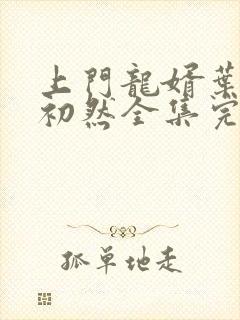 上門龍婿葉
初然全集完
孤單地走